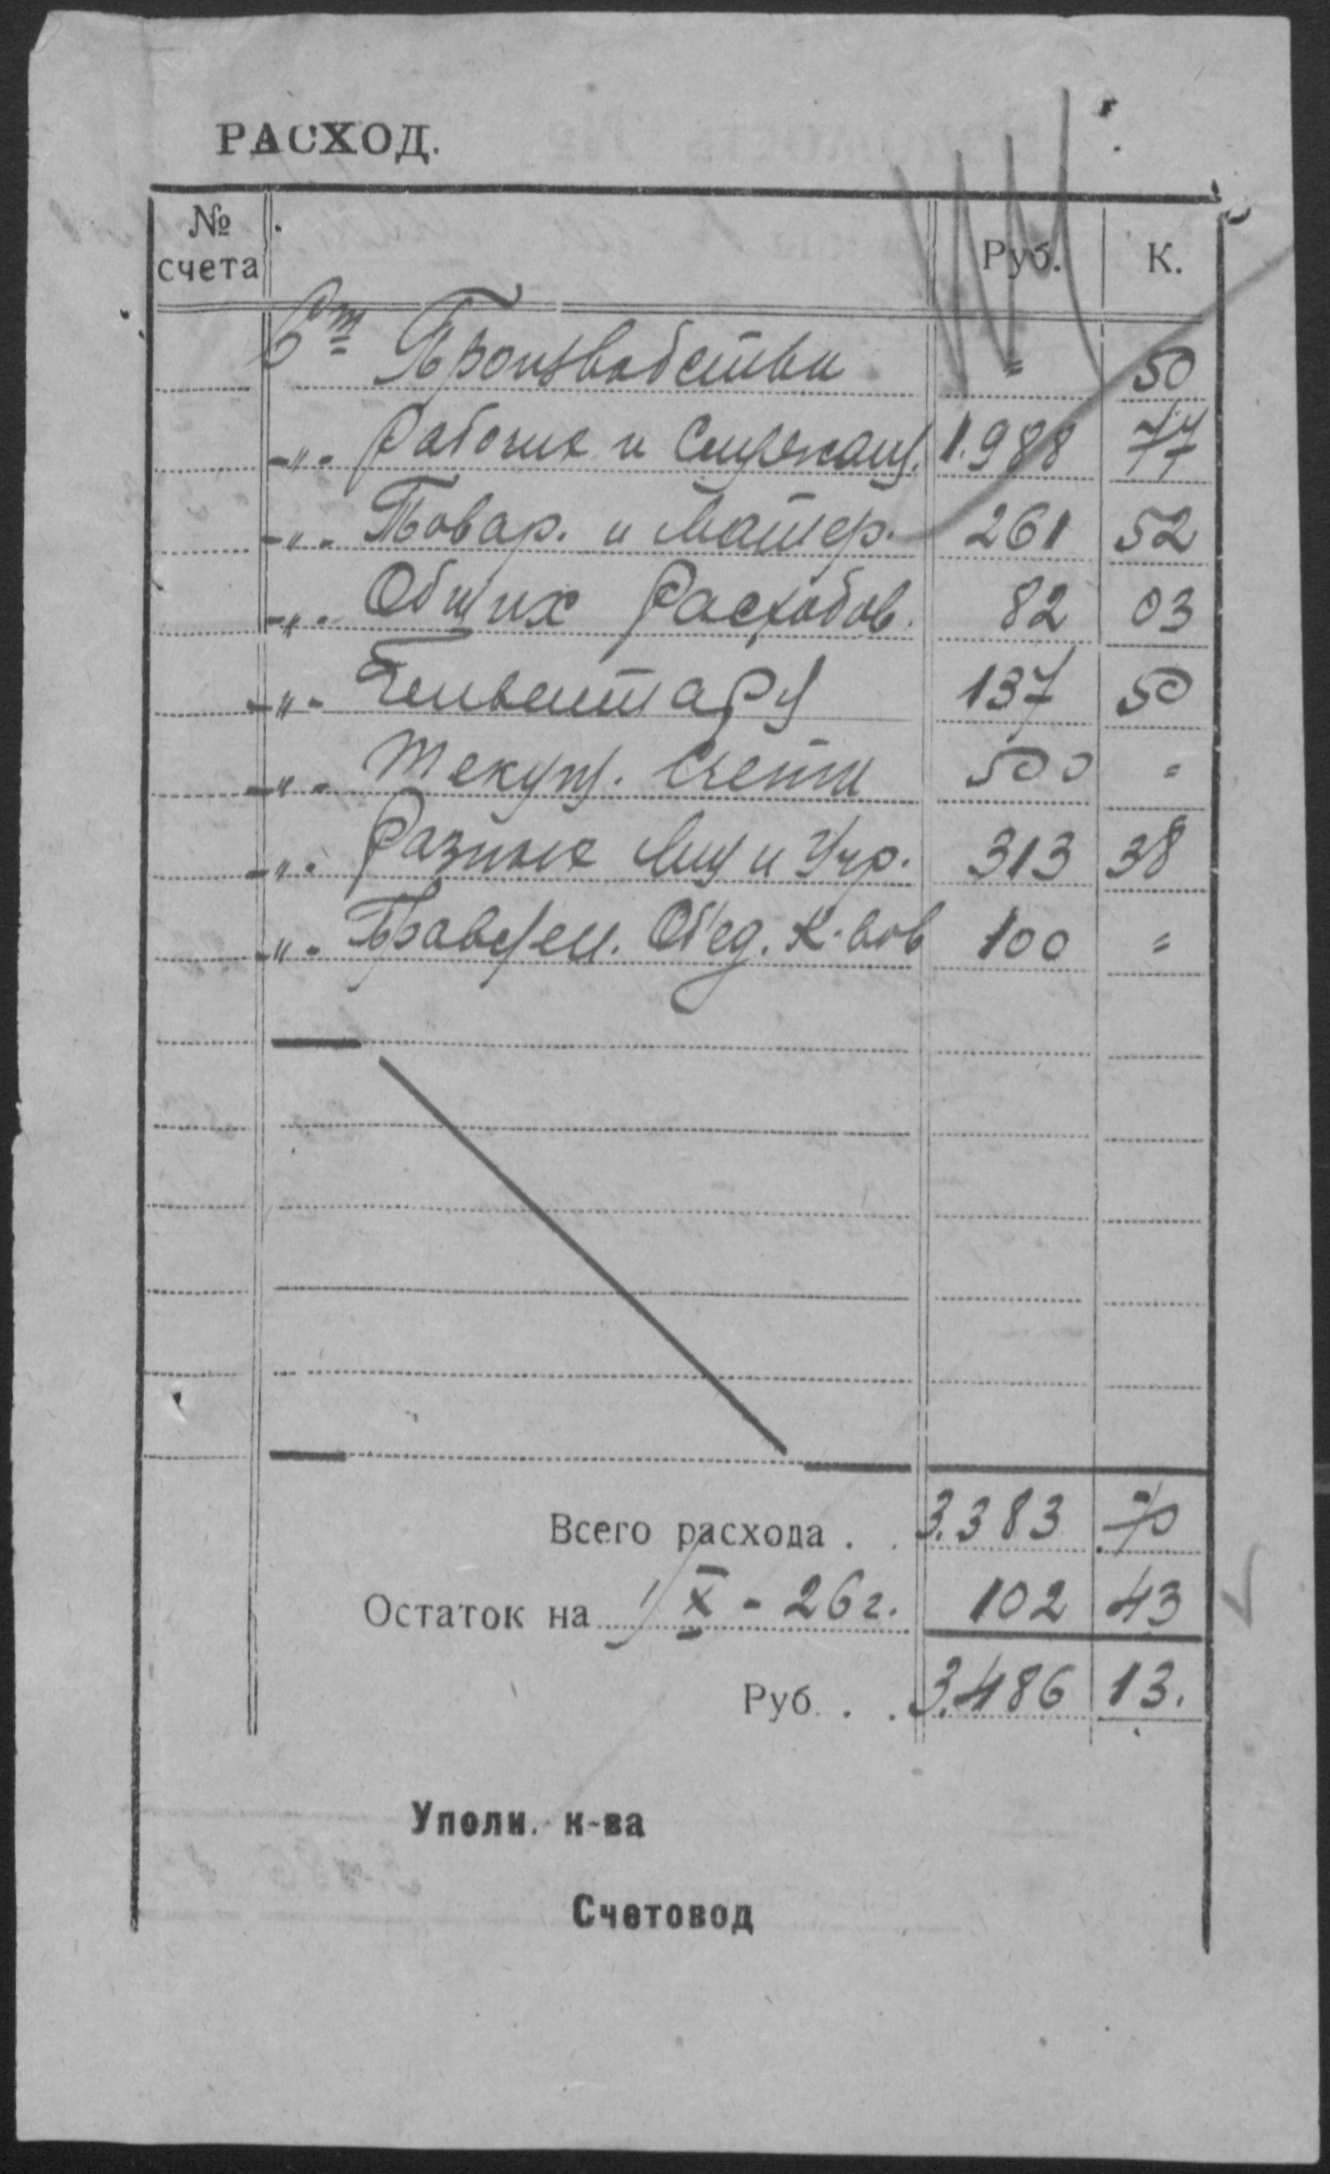 РАСХОД.
№ счета Руб. К.
Ст Производства " 50
-"- Рабочие и Служащ. 1.988 77
-"- Товар. и Матер. 261 52
-"- Общих Расходов. 82 03
-"- Инвентару 137 50
-"- Текущ. Счета 500 "
-"- Разных Лиц и Учр. 313 38
-"- Правлен. Об'ед. К-вов 100 "
Всего расхода . . 3.383 70
Остаток на 1/X - 26 г. 102 43
Руб. . . 3.486 13.
Уполн. к-ва
Счетовод